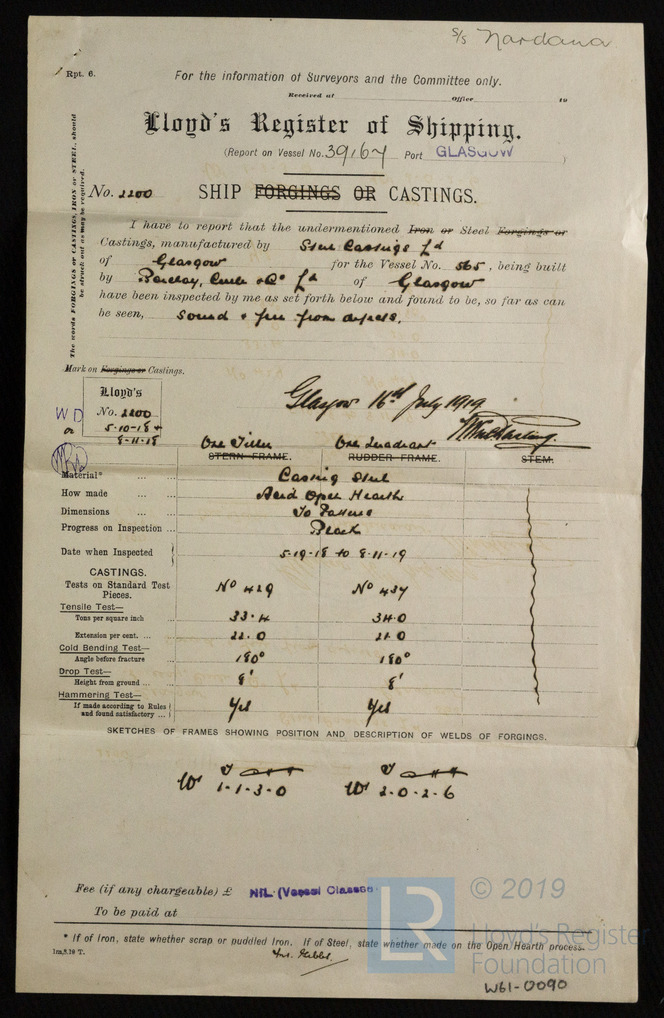 s/s Nardana
Rpt. 6.
For the information of Surveyors and the Committee only.
Received at Office 19
Lloyd's Register of Shipping.
(Report on Vessel No. 39167 Port GLASGOW )
The words FORGINGS or CASTINGS, IRON or STEEL, should
be struck out as may be required.
No. 2200 SHIP FORGINGS OR CASTINGS.
I have to report that the undermentioned Iron or Steel Forgings or
Castings, manufactured by Steel Castings Ld
of Glasgow for the Vessel No. 565, being built
by Barclay, Curle & Co Ld of Glasgow
have been inspected by me as set forth below and found to be, so far as can
be seen, sound & free from defects.
Mark on Forgings or Castings.
Lloyd's
No. 2200
WD 5-10-18 &
or 8-11-18
Glasgow 16th July 1919
One Tiller One Quadrant
STERN-FRAME. RUDDER-FRAME. STEM.
Material* ... ... Casting Steel
How made ... Acid Open Hearth
Dimensions ... To Pattern
Progress on Inspection ... Black
Date when Inspected 5-10-18 to 8-11-19
CASTINGS.
Tests on Standard Test
Pieces. No 429 No 437
Tensile Test—
Tons per square inch 33.4 34.0
Extension per cent. ... 22.0 21.0
Cold Bending Test—
Angle before fracture ... 180° 180°
Drop Test—
Height from ground ... 8' 8'
Hammering Test—
If made according to Rules
and found satisfactory ... Yes Yes
SKETCHES OF FRAMES SHOWING POSITION AND DESCRIPTION OF WELDS OF FORGINGS.
Wt 1-1-3-0 Wt 2-0-2-6
Fee (if any chargeable) £ NIL (Vessel Classed
To be paid at
* If of Iron, state whether scrap or puddled Iron. If of Steel, state whether made on the Open Hearth process.
1m,5.19 T.
LR
© 2019
Lloyd's Register
Foundation
W61-0090